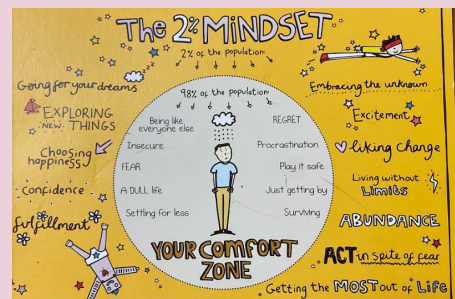 The 2% MiNDSET
2% of the population
98% of the population
Going for your dreams
EXPLORING
NEW THINGS
Choosing
happiness
Confidence
fulfillment
Being like
everyone else
Insecure
FEAR
A DULL life
Settling for less
REGRET
Procrastination
Play it safe
Just getting by
Surviving
YOUR COMFORT
ZONE
Embracing the unknown
Excitement
liking change
Living without
Limits
ABUNDANCE
ACT in spite of fear
Getting the MOST out of Life